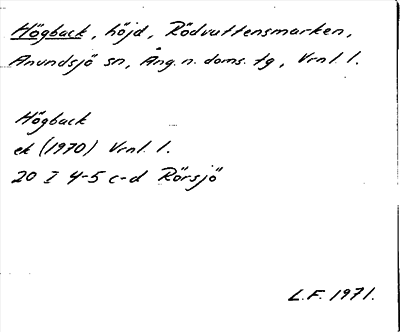 Högback, höjd, Rödvattensmarken,
Anundsjö sn, Ång. n. doms. tg, Vrnl. l.
Högback
ek (1970) Vrnl. l.
20 I 4-5 c-d Rörsjö
L.F. 1971.